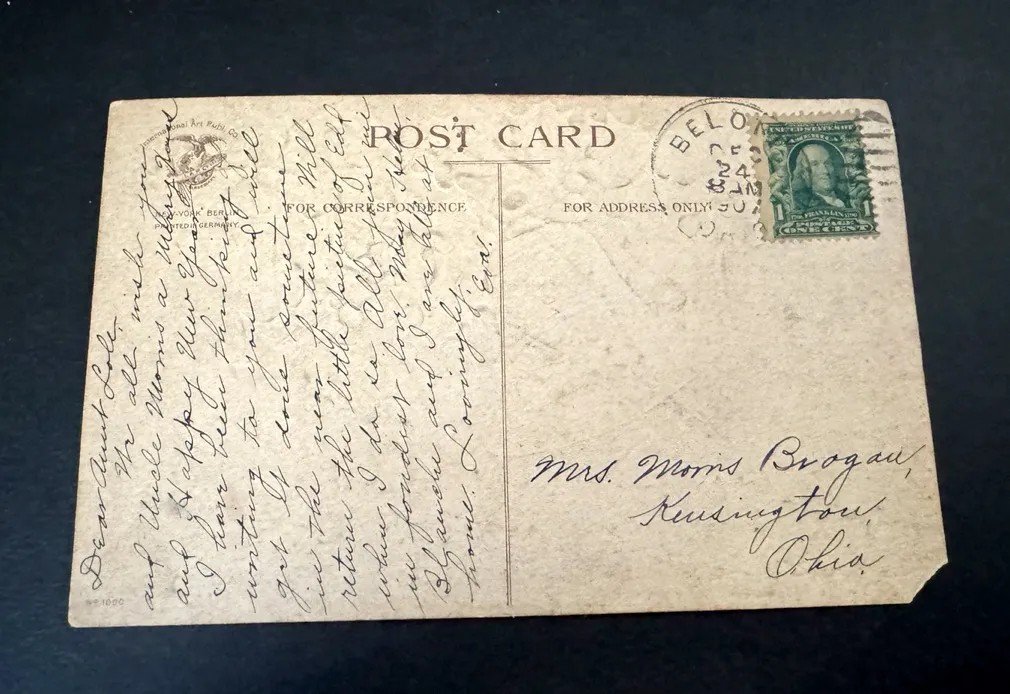 POST CARD
International Art Publ. Co.
NEW-YORK BERLIN
PRINTED IN GERMANY
FOR CORRESPONDENCE
FOR ADDRESS ONLY
Dear Aunt
We all wish you
and Uncle Morris a Merry Xmas
and Happy New Year
I have been thinking
writing to you and will
get it done sometime
in the near future. Will
return the little picture of
when I do so. All join me
in fondest love. May,
Blanche and I are all at
home. Lovingly.
Eva.
Mrs. Morris Brogan,
Kensington,
Ohio,
BELO
DEC
24
8 AM
190
UNITED STATES OF
AMERICA
FRANKLIN
1 1
POSTAGE
ONE CENT